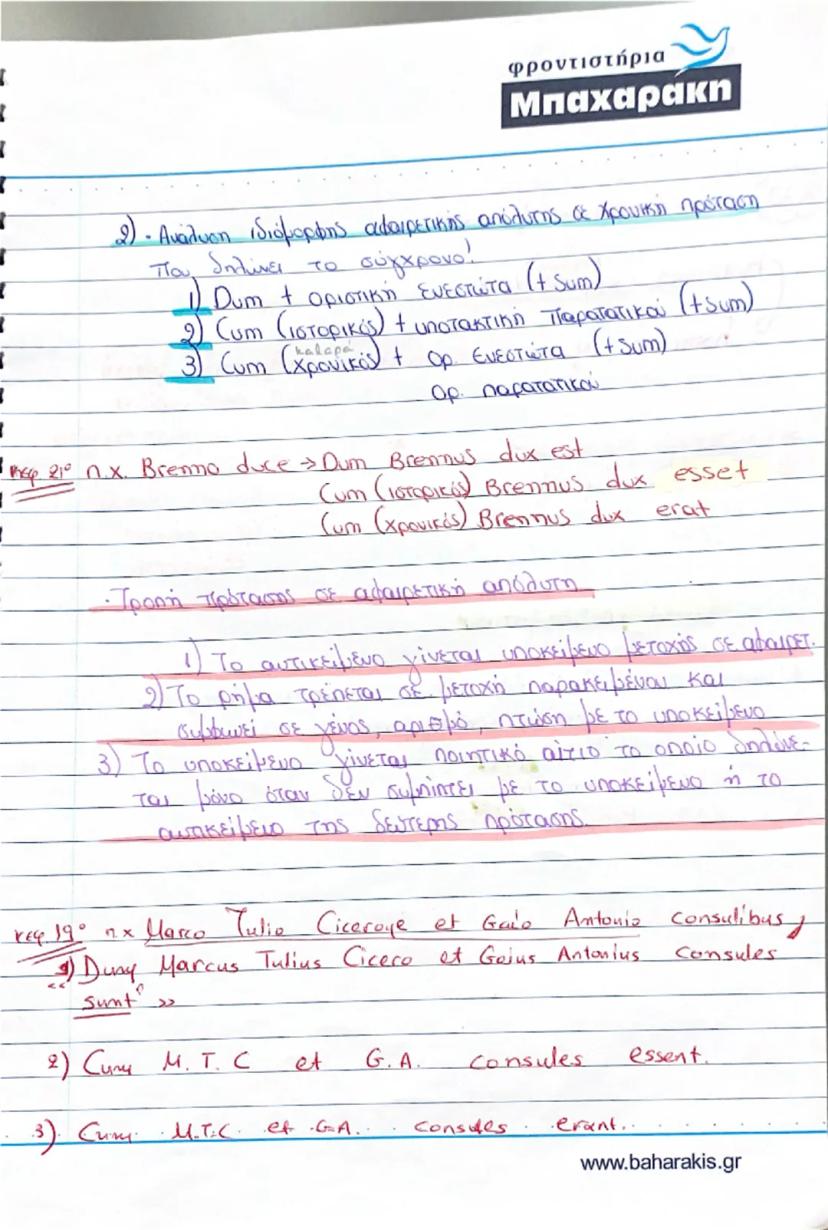 φροντιστήρια
Μπαχαράκη
2). Ανάλυση ιδιόμορφης αφαιρετικής απόλυτης σε χρονική πρόταση
που δηλώνει το σύγχρονο!
1) Dum + οριστική ενεστώτα (+ sum)
2) Cum (ιστορικός) + υποτακτική παρατατικού (+ sum)
καθαρά
3) Cum (χρονικός) + ορ. ενεστώτα (+ sum)
ορ. παρατατικού
κεφ 21º π.χ. Brenno duce → Dum Brennus dux est
Cum (ιστορικός) Brennus dux esset
Cum (χρονικός) Brennus dux erat
· Τροπή πρότασης σε αφαιρετική απόλυτη
1) Το αντικείμενο γίνεται υποκείμενο μετοχής σε αφαιρετ.
2) Το ρήμα τρέπεται σε μετοχή παρακειμένου και
συμφωνεί σε γένος, αριθμό, πτώση με το υποκείμενο
3) Το υποκείμενο γίνεται ποιητικό αίτιο το οποίο δηλώνε-
ται μόνο όταν δεν συμπίπτει με το υποκείμενο ή το
αντικείμενο της δεύτερης πρότασης.
κεφ 19º π χ Marco Tulio Cicerone et Gaio Antonio consulibus,
1) Dum Marcus Tulius Cicero et Gaius Antonius consules
<< sunt >>
2) Cum M. T. C et G. A. consules essent.
3). Cum M.T.C. et G.A. consules erant.
www.baharakis.gr